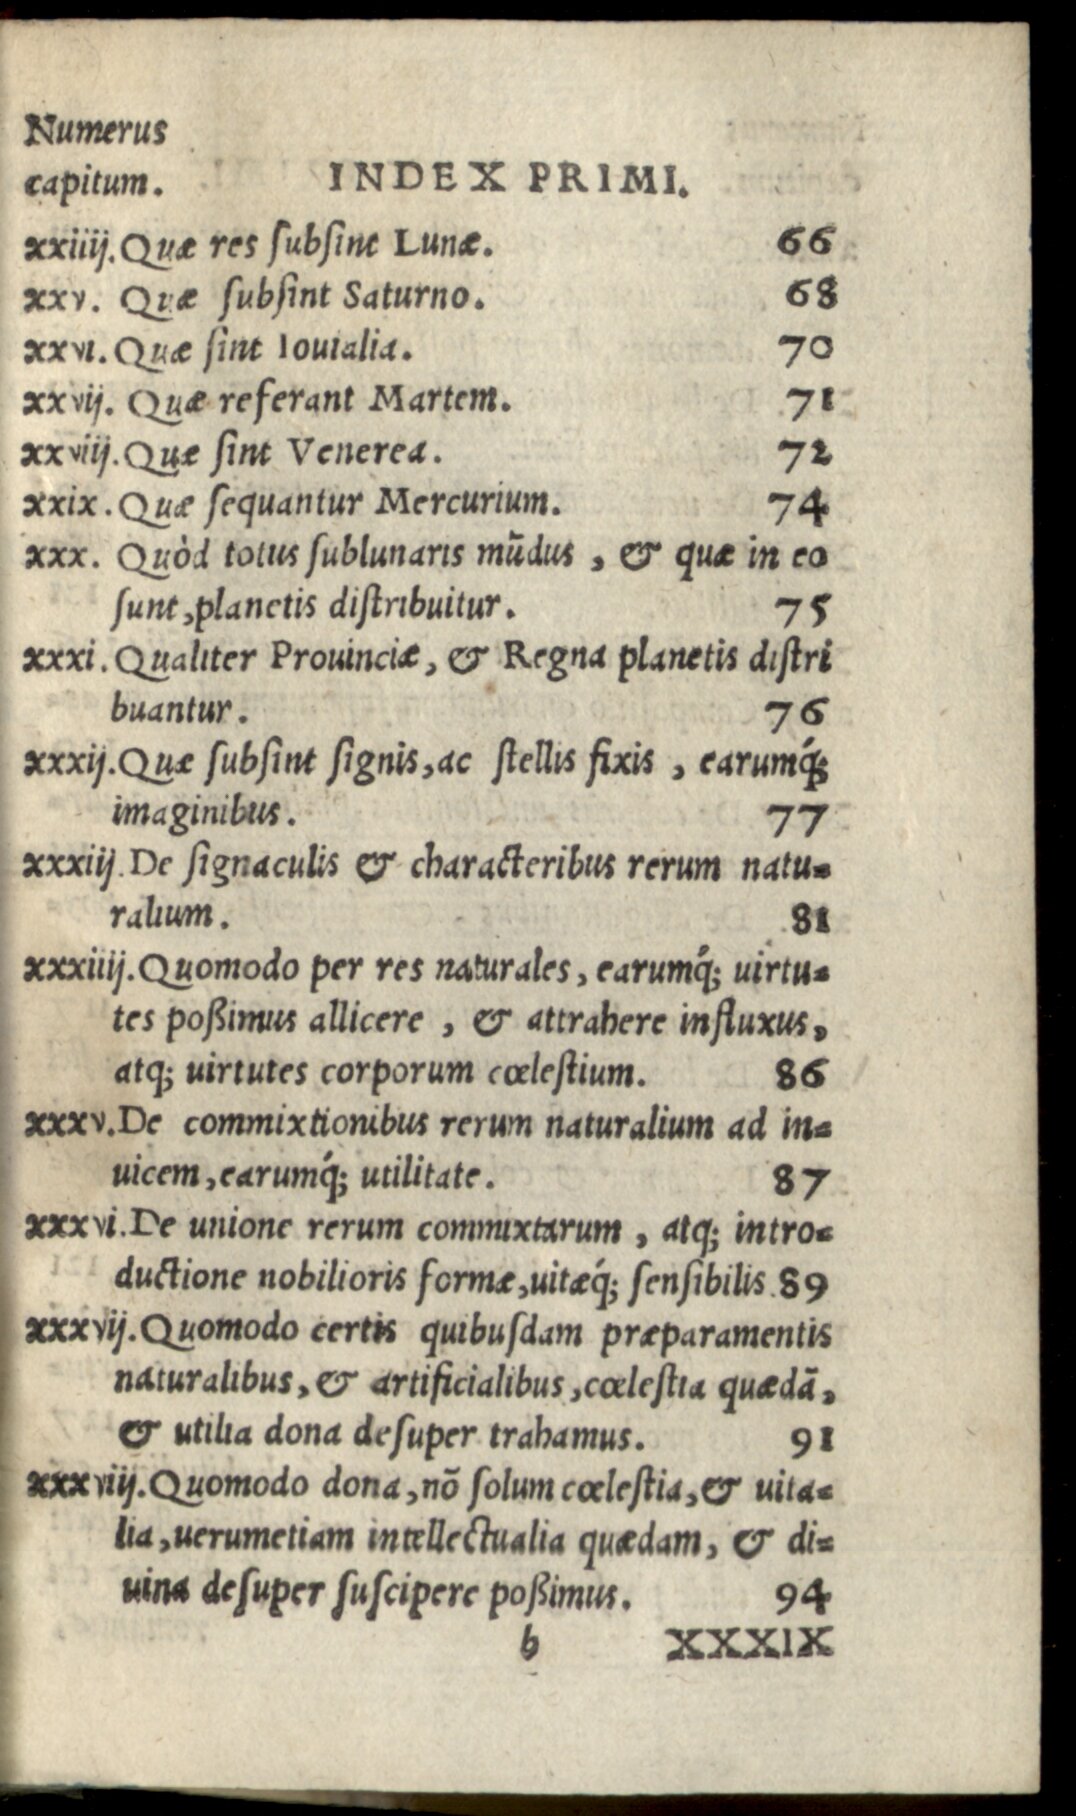 Numerus
capitum. INDEX PRIMI.
xxiiij. Quæ res ſubſint Lunæ. 66
xxv. Quæ ſubſint Saturno. 68
xxvi. Quæ ſint Iouialia. 70
xxvij. Quæ referant Martem. 71
xxviij. Quæ ſint Venerea. 72
xxix. Quæ ſequantur Mercurium. 74
xxx. Quòd totus ſublunaris mũdus, & quæ in eo
ſunt, planetis diſtribuitur. 75
xxxi. Qualiter Prouinciæ, & Regna planetis diſtri
buantur. 76
xxxij. Quæ ſubſint ſignis, ac ſtellis fixis, earumq́;
imaginibus. 77
xxxiij. De ſignaculis & characteribus rerum natu=
ralium. 81
xxxiiij. Quomodo per res naturales, earumq́; uirtu=
tes poßimus allicere, & attrahere influxus,
atq; uirtutes corporum cœleſtium. 86
xxxv. De commixtionibus rerum naturalium ad in=
uicem, earumq́; utilitate. 87
xxxvi. De unione rerum commixtarum, atq; intro=
ductione nobilioris formæ, uitæq́; ſenſibilis. 89
xxxvij. Quomodo certis quibuſdam præparamentis
naturalibus, & artificialibus, cœleſtia quædã,
& utilia dona deſuper trahamus. 91
xxxviij. Quomodo dona, nõ ſolum cœleſtia, & uita=
lia, uerumetiam intellectualia quædam, & di=
uina deſuper ſuſcipere poßimus. 94
b XXXIX